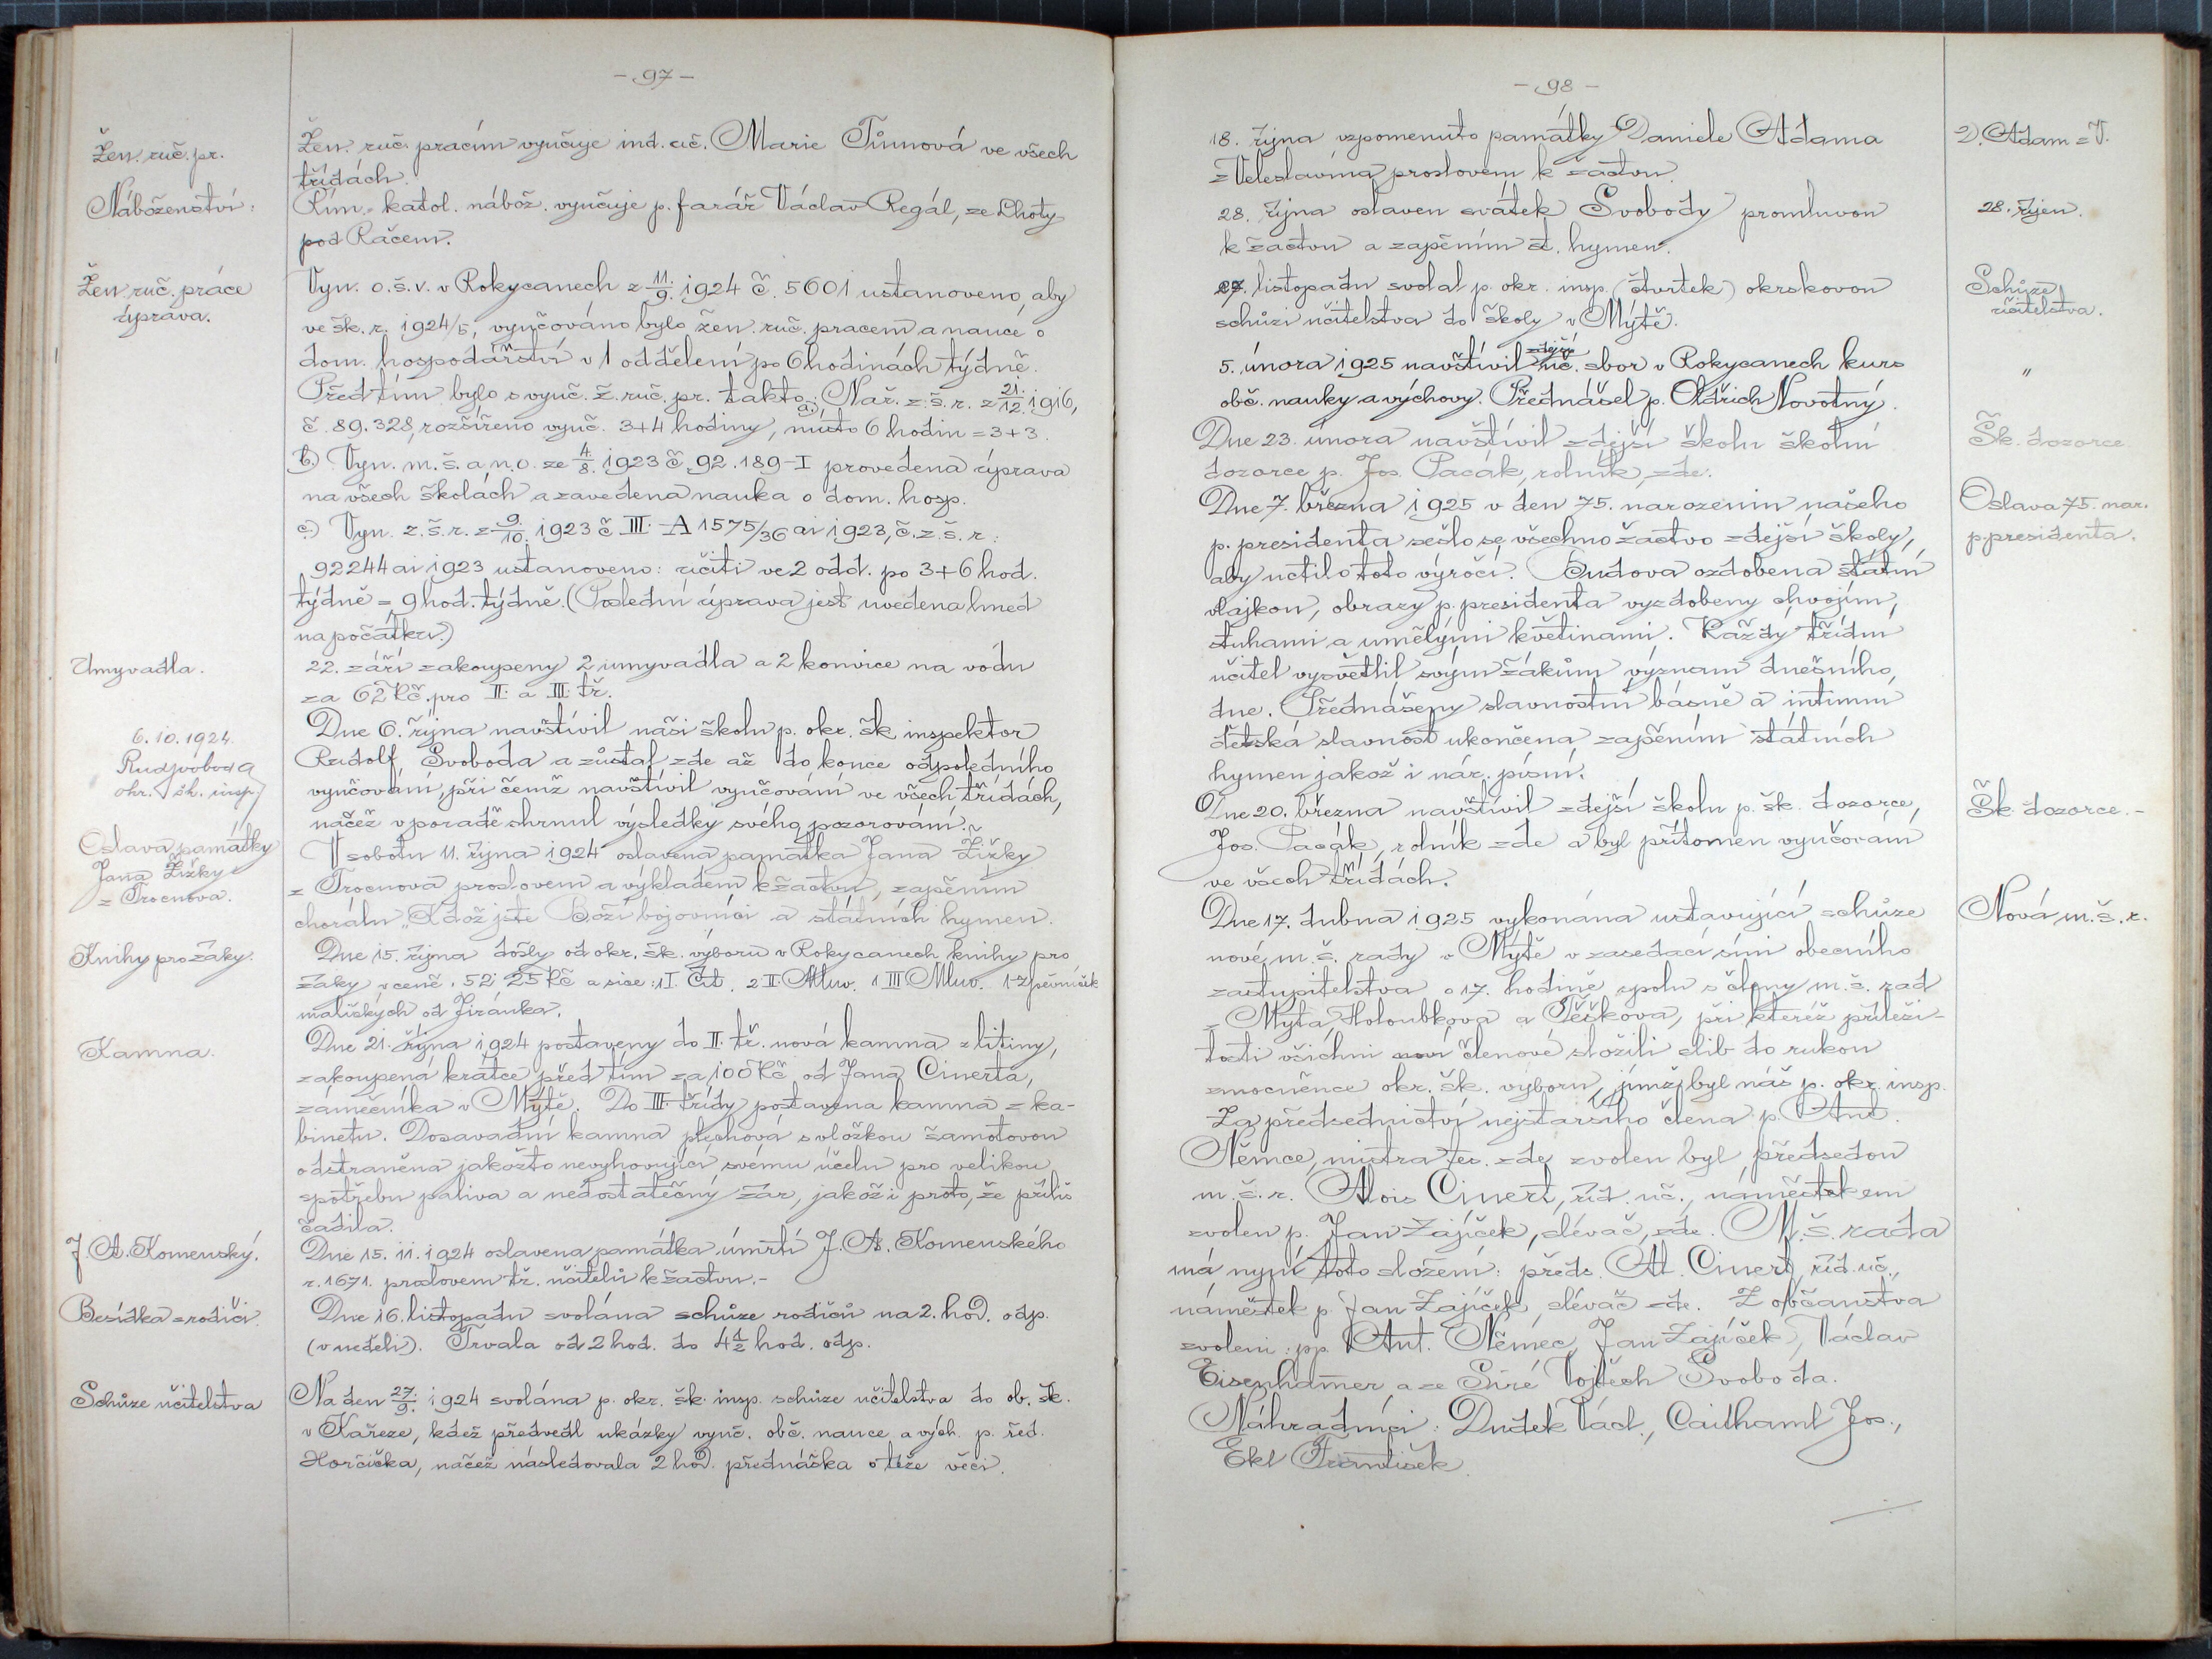 - 97 -
Žen. ruč. pr.
Žen. ruč. pracím vyučuje ind. uč. Marie Tůmová ve všech
třídách.
Náboženství:
Řím.-katol. nábož. vyučuje p. farář Václav Regál, ze Lhoty
pod Račem.
Žen. ruč. práce
úprava.
Vyn. o.š.v. v Rokycanech z 11./9. 1924 č. 5601 ustanoveno, aby
ve šk. r. 1924/5, vyučováno bylo žen. ruč. pracem a nauce o
dom. hospodářství v 1 oddělení po 6 hodinách týdně.
Před tím bylo s vyuč. ž. ruč. pr. takto: a) Nař. z.š.r. z 21./12. 1916,
č. 89.328, rozšířeno vyuč. 3+4 hodiny, místo 6 hodin = 3+3.
b) Vyn. m.š.a n.o. ze 4./8. 1923 č. 92.189-I provedena úprava
na všech školách a zavedena nauka o dom. hosp.
c) Vyn. z.š.r. z 9./10. 1923 č. III.-A 1575/36 ai 1923, č. z.š.r.:
92244 ai 1923 ustanoveno: učiti ve 2 odd. po 3+6 hod.
týdně = 9 hod. týdně. (Poslední úprava jest uvedena hned
na počátku.)
Umyvadla.
22. září zakoupeny 2 umyvadla a 2 konvice na vodu
za 62 Kč pro II. a III. tř.
6. 10. 1924.
Rud. Svoboda
okr. šk. insp.
Dne 6. října navštívil naši školu p. okr. šk. inspektor
Rudolf Svoboda a zůstal zde až do konce odpoledního
vyučování, při čemž navštívil vyučování ve všech třídách,
načež v poradě shrnul výsledky svého pozorování.
Oslava památky
Jana Žižky
z Trocnova.
V sobotu 11. října 1924 oslavena památka Jana Žižky
z Trocnova proslovem a výkladem k žactvu, zapěním
chorálu „Kdož jste Boží bojovníci a státních hymen.
Knihy pro žáky.
Dne 15. října došly od okr. šk. výboru v Rokycanech knihy pro
žáky v ceně 52.25 Kč a sice: 1 I. Čít. 2 II. Mluv. 1 III Mluv. 1 Zpěvníček
maličkých od Jiránka.
Kamna.
Dne 21. října 1924 postaveny do II. tř. nová kamna z litiny,
zakoupená krátce před tím za 100 Kč od Jana Cinerta,
zámečníka v Mýtě. Do III. třídy postavena kamna z ka-
binetu. Dosavadní kamna plechová s vložkou šamotovou
odstraněna jakožto nevyhovující svému účelu pro velikou
spotřebu paliva a nedostatečný žár, jakož i proto, že příliš
čadila.
J. A. Komenský.
Dne 15. 11. 1924 oslavena památka úmrtí J. A. Komenského
r. 1671. proslovem tř. učitelů k žactvu.-
Besídka s rodiči.
Dne 16. listopadu svolána schůze rodičů na 2. hod. odp.
(v neděli). Trvala od 2 hod. do 4 1/2 hod. odp.
Schůze učitelstva
Na den 27./9. 1924 svolána p. okr. šk. insp. schůze učitelstva do ob. šk.
v Kařeze, kdež předvedl ukázky vyuč. obč. nauce a vých. p. řed.
Horčička, načež následovala 2 hod. přednáška o téže věci.
- 98 -
18. října vzpomenuto památky Daniele Adama
z Veleslavína proslovem k žactvu.
D. Adam z V.
28. října oslaven svátek Svobody promluvou
k žactvu a zapěním st. hymen.
28. říjen.
27. listopadu svolal p. okr. insp. (čtvrtek) okrskovou
schůzi učitelstva do školy v Mýtě.
Schůze
učitelstva.
5. února 1925 navštívil zdejší uč. sbor v Rokycanech kurs
obč. nauky a výchovy. Přednášel p. Oldřich Novotný.
"
Dne 23. února navštívil zdejší školu školní
dozorce p. Jos. Pacák, rolník, zde.
Šk. dozorce
Dne 7. března 1925 v den 75. narozenin našeho
p. presidenta sešlo se všechno žactvo zdejší školy,
aby uctilo toto výročí. Budova ozdobena státní
vlajkou, obrazy p. presidenta vyzdobeny chvojím,
stuhami a umělými květinami. Každý třídní
učitel vysvětlil svým žákům význam dnešního
dne. Přednášeny slavnostní básně a intimní
dětská slavnost ukončena zapěním státních
hymen jakož i nár. písní.
Oslava 75. nar.
p. presidenta.
Dne 20. března navštívil zdejší školu p. šk. dozorce,
Jos. Pacák, rolník zde a byl přítomen vyučování
ve všech třídách.
Šk. dozorce.-
Dne 17. dubna 1925 vykonána ustavující schůze
nové m. š. rady v Mýtě v zasedací síni obecního
zastupitelstva o 17. hodině spolu s členy m. š. rad
z Mýta, Holoubkova a Těškova, při kteréž příleži-
tosti všichni noví členové složili slib do rukou
zmocněnce okr. šk. výboru, jímž byl náš p. okr. insp.
Za předsednictví nejstaršího člena p. Ant.
Němce, mistra tes. zde, zvolen byl předsedou
m. š. r. Alois Cinert, říd. uč., náměstkem
zvolen p. Jan Zajíček, slévač, zde. M. š. rada
má nyní toto složení: předs. Al. Cinert, říd. uč.,
náměstek p. Jan Zajíček, slévač zde. Z občanstva
zvoleni: pp. Ant. Němec, Jan Zajíček, Václav
Eisenhamer, a ze Siré Vojtěch Svoboda.
Náhradníci: Dudek Václ., Cailhaml Jos.,
Ekl František.
Nová m. š. r.